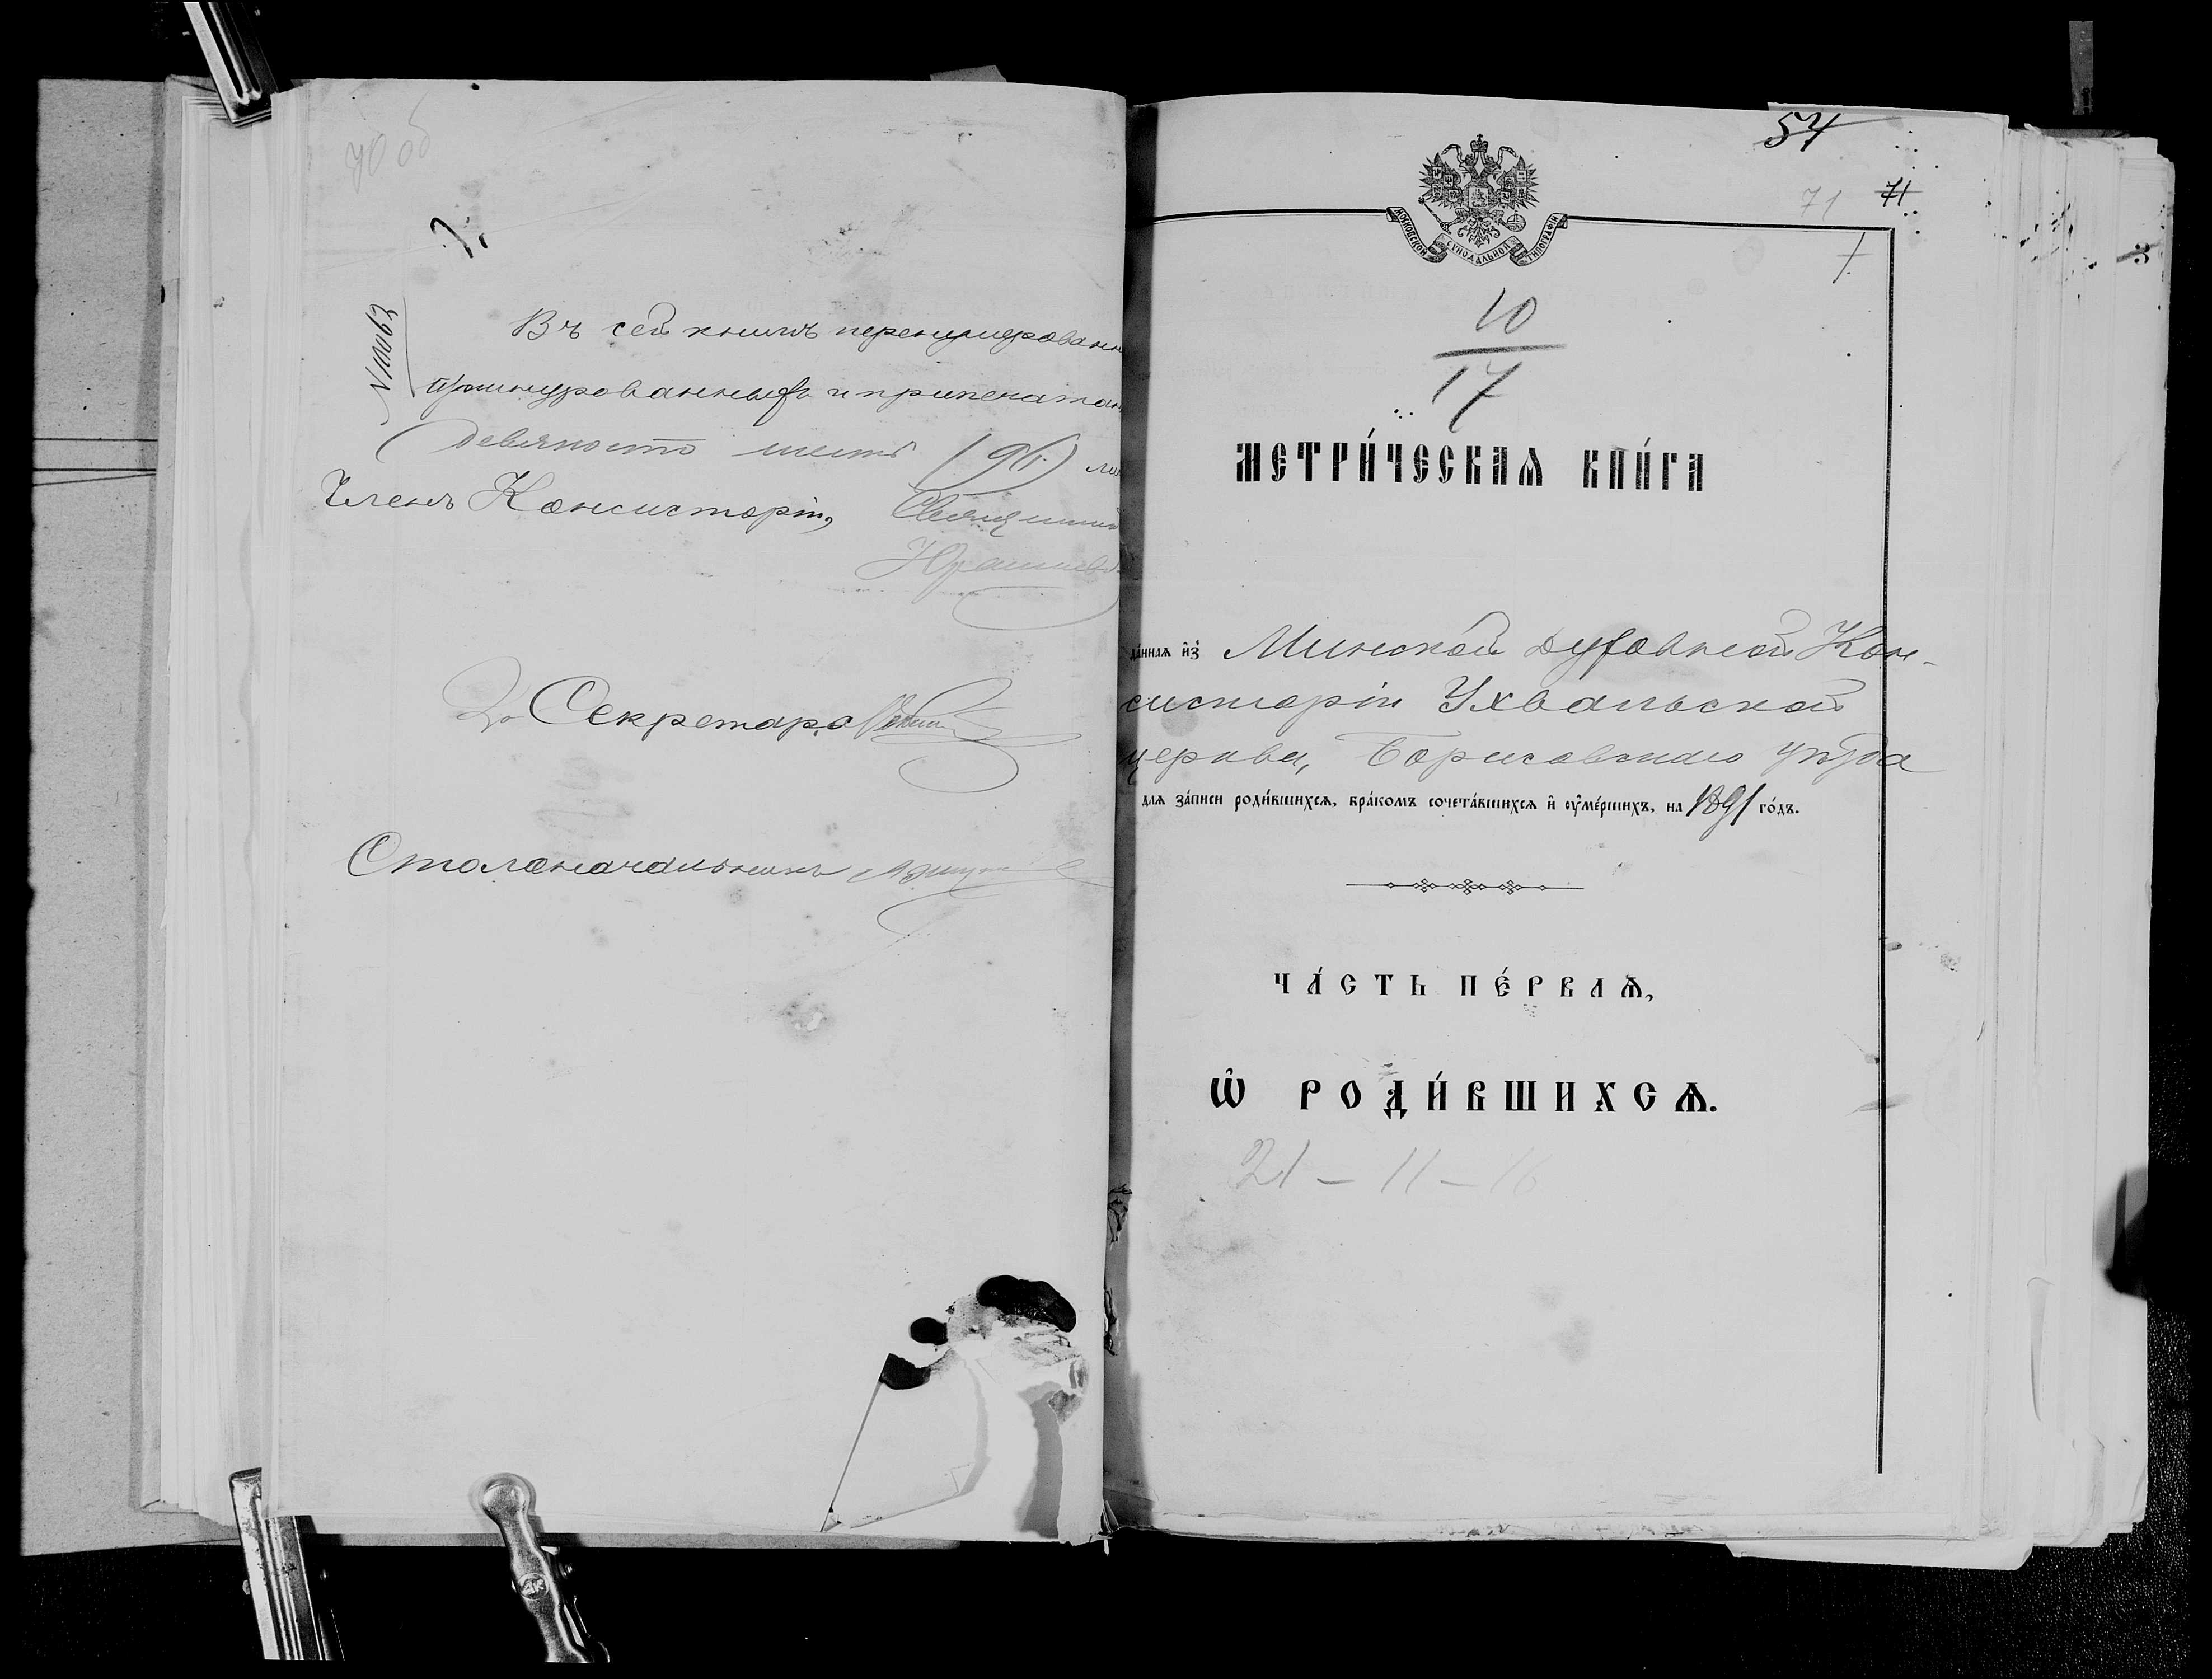 70 об
№ 10063
Въ сей книгѣ перенумерованн
шнурованныхъ и припечатан
девяносто шесть (96) ли
Членъ Консисторіи, Священник
Секретаря
Столоначальникъ
54
71 71
МОСКОВСКОЙ СУНОДАЛЬНОЙ ТИПОГРАФІИ
10
17
МЕТРИ́ЧЕСКАѦ КНИ́ГА
да́ннаѧ и҆з̾ Минской Духовной Кон-
систоріи Ухвальской
церкви, Борисовскаго уѣзда
для за́писи роди́вшихсѧ, бра́комъ сочета́вшихсѧ и҆ ᲂу҆ме́ршихъ, на 1891 го́дъ.
ЧА́СТЬ ПЕ́РВАѦ,
Ѽ РОДИ́ВШИХСѦ.
21 – 11 – 16